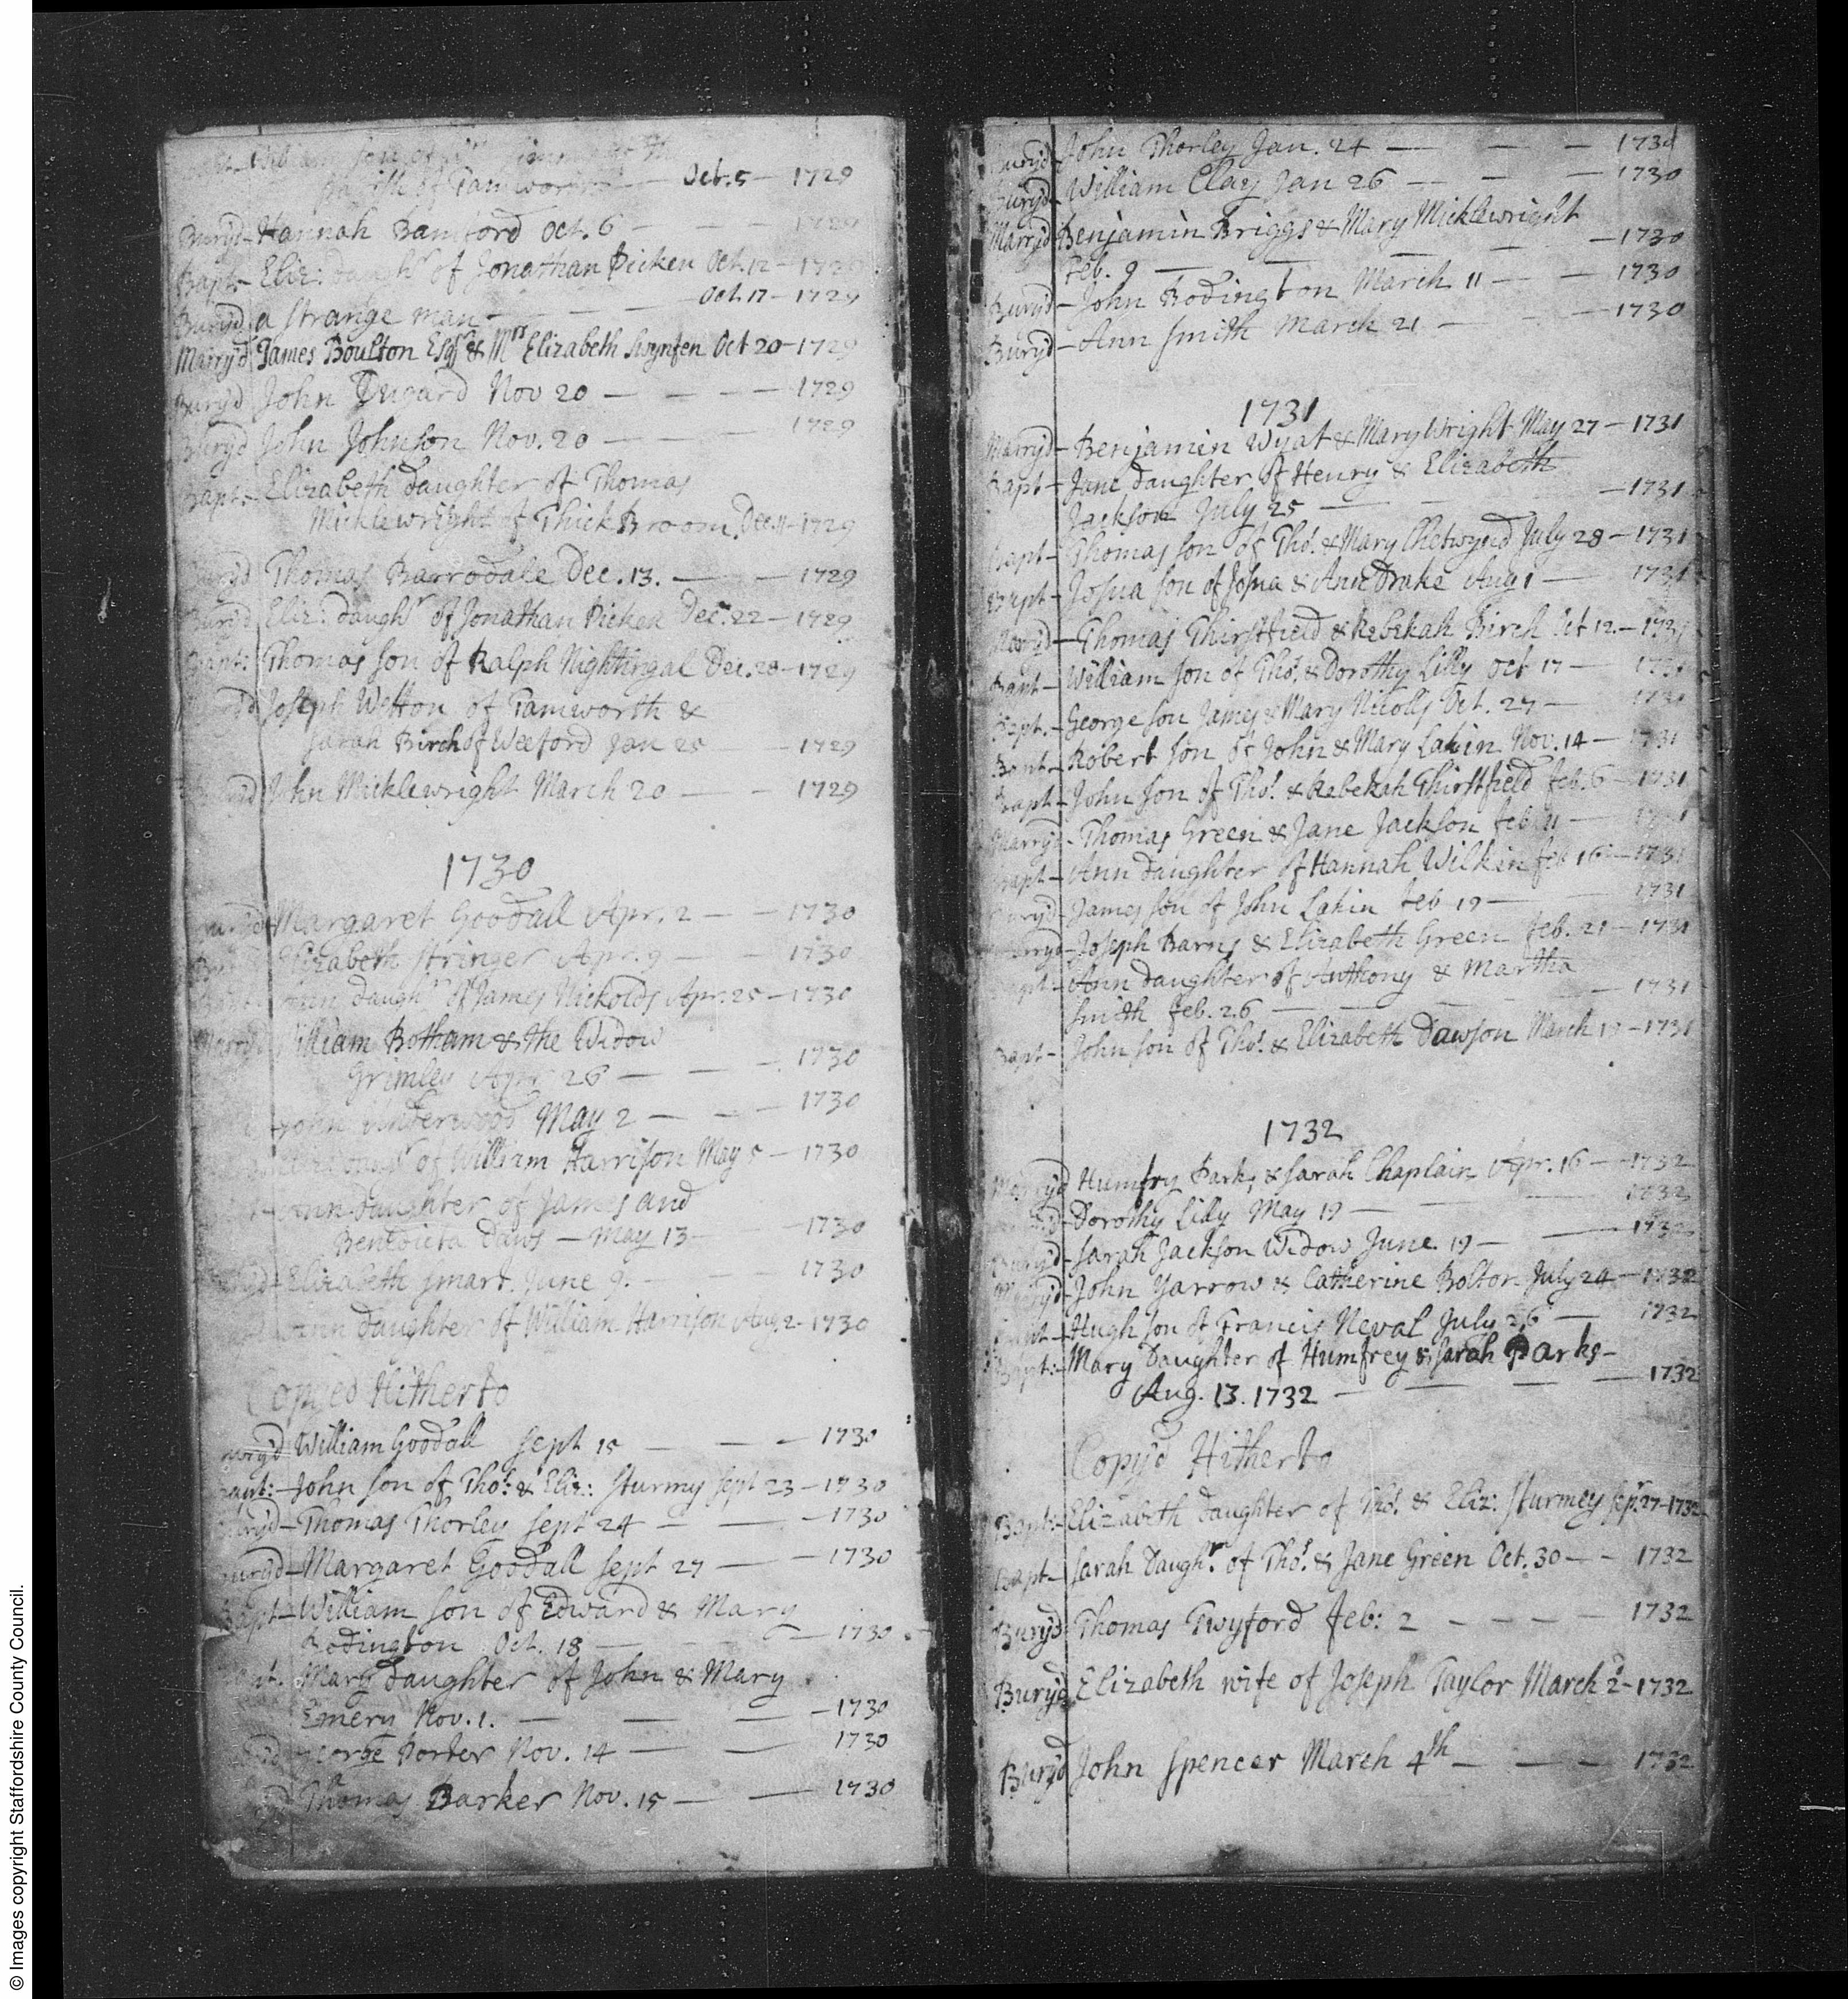 William son of
of Tamworth — Oct. 5 — 1729
Bury'd Hannah Bamford Oct. 6 — — — 1729
Bapt: Eliz: daughr of Jonathan Picken Oct. 12 — 1729
Bury'd a strange man — — — Oct. 17 — 1729
Marry'd James Boulton Esqr & Mrs Elizabeth Swynfen Oct 20 — 1729
Bury'd John Dugard Nov 20 — — — — 1729
Bury'd John Johnson Nov. 20 — — — 1729
Bapt: Elizabeth daughter of Thomas
Micklewright of Thick Broom, Dec. 11 — 1729
Bury'd Thomas Barrodale Dec. 13. — — 1729
Bury'd Eliz: daughr of Jonathan Picken Dec. 22 — 1729
Bapt: Thomas son of Ralph Nightingal Dec. 28 — 1729
Joseph Wetton of Tamworth &
Sarah Birch of Weeford Jan 25 — 1729
John Micklewright March 20 — — 1729
1730
Margaret Goodall Apr. 2 — — 1730
Elizabeth Stringer Apr. 9 — — 1730
Ann daughr of James Nickolds Apr. 25 — 1730
Marry'd William Botham & the Widow
Grimley Apr 26 — — — 1730
John Underwood May 2 — — — 1730
daughr of William Harrison May 5 — 1730
Ann daughter of James and
Benedicta Daws — May 13 — — 1730
Bury'd Elizabeth Smart. June 9. — — — 1730
Ann daughter of William Harrison Aug. 2 — 1730
Copyed Hitherto
Bury'd William Goodall Sept 15 — — — 1730
Bapt: — John son of Thos: & Eliz: Sturmy Sept 23 — 1730
Bury'd — Thomas Thorley Sept 24 — — — 1730
Bury'd — Margaret Goodall Sept 27 — — 1730
Bapt — William son of Edward & Mary
Bodington Oct. 18 — — — 1730
Bapt. Mary daughter of John & Mary
Emery Nov. 1. — — — — 1730
George Porter Nov. 14 — — 1730
Thomas Barker Nov. 15 — — 1730
Bury'd John Thorley Jan. 24 — — — 1730
Bury'd William Clay Jan 26 — — — 1730
Marry'd Benjamin Briggs & Mary Micklewright
Feb. 9 — — — — 1730
Bury'd — John Bodington March 11 — — 1730
Bury'd — Ann Smith March 21 — — — 1730
1731
Marry'd — Benjamin Wyat & Mary Wright May 27 — 1731
Bapt — Jane daughter of Henry & Elizabeth
Jackson July 25 — — — 1731
Bapt — Thomas son of Tho. & Mary Chetwynd July 28 — 1731
Bapt — Josua son of Josua & Ann Drake Aug 1 — 1731
Marry'd — Thomas Thirstfield & Rebekah Birch Oct 12. — 1731
Bapt — William son of Tho. & Dorothy Lilly Oct 17 — 1731
Bapt. — George son James & Mary Nicolls Oct. 27 — 1731
Bapt — Robert son of John & Mary Lakin Nov. 14 — 1731
Bapt — John son of Tho. & Rebekah Thirstfield Feb. 6 — 1731
Marry'd — Thomas Green & Jane Jackson Feb. 11 — 1731
Bapt — Ann daughter of Hannah Wilkin Feb 16 — 1731
Bury'd — James son of John Lakin Feb 19 — 1731
Marry'd — Joseph Barns & Elizabeth Green Feb. 21 — 1731
Bapt: — Ann daughter of Anthony & Martha
Smith Feb. 26 — — — 1731
Bapt — John son of Tho. & Elizabeth Dawson March 19 — 1731
1732
Marry'd Humfry Parks & Sarah Chaplain Apr. 16 — 1732
Bury'd — Dorothy Lilly May 19 — — 1732
Bury'd — Sarah Jackson Widow June. 19 — — 1732
Marry'd — John Yarrow & Catherine Bolton July 24 — 1732
Bapt — Hugh son of Francis Neval July 26 — 1732
Bapt: — Mary Daughter of Humfrey & Sarah Parks —
Aug. 13. 1732 — — — — 1732
Copy'd Hitherto
Bapt: — Elizabeth daughter of Tho. & Eliz: Sturmey Sep. 27 — 1732
Bapt — Sarah Daughr. of Tho. & Jane Green Oct. 30 — — 1732
Bury'd Thomas Twyford Feb: 2 — — — — 1732
Bury'd Elizabeth wife of Joseph Taylor March 2d — 1732
Bury'd John Spencer March 4th — — — — 1732
© Images copyright Staffordshire County Council.